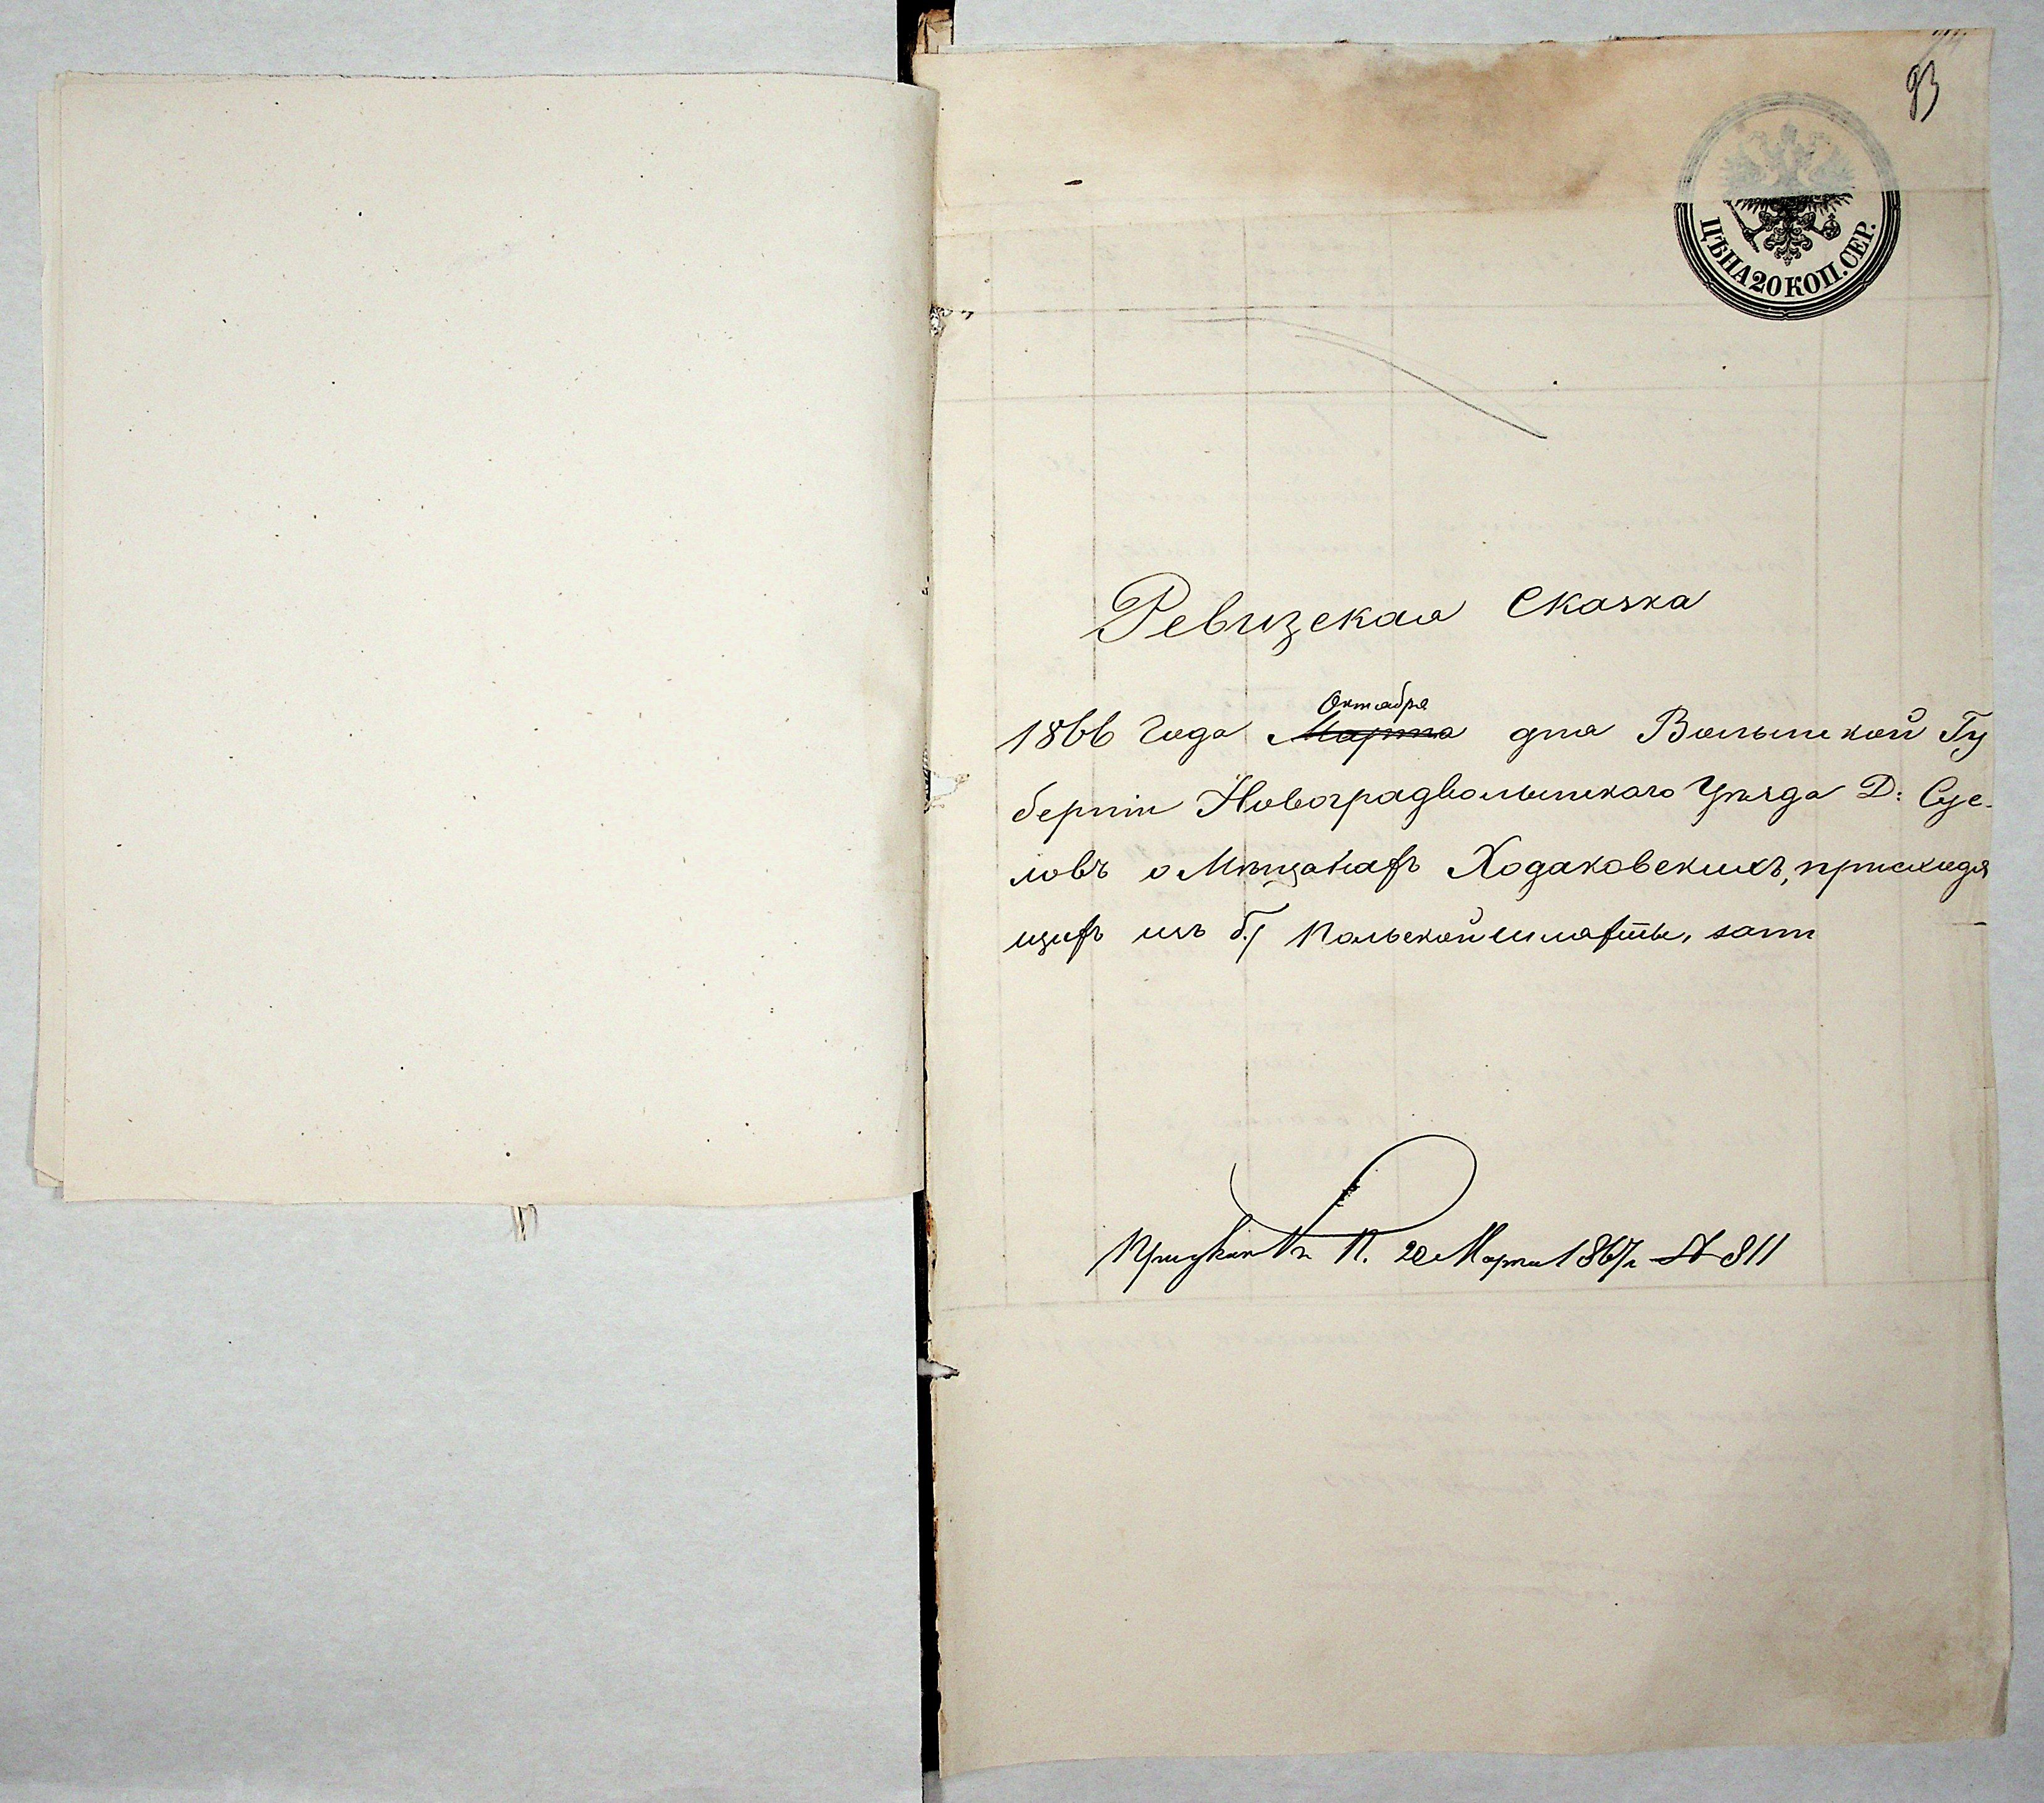 93
ЦѢНА 20 КОП. СЕР.
Ревизская Сказка
Октября
1866 года Марта дня Волынской Гу
берніи Новоградволынскаго Уѣзда Д: Сус-
ловъ о Мѣщанахъ Ходаковскихъ, происходя
щихъ изъ б. Польской шляхты,
П. 20 Марта 1867 г. № 811